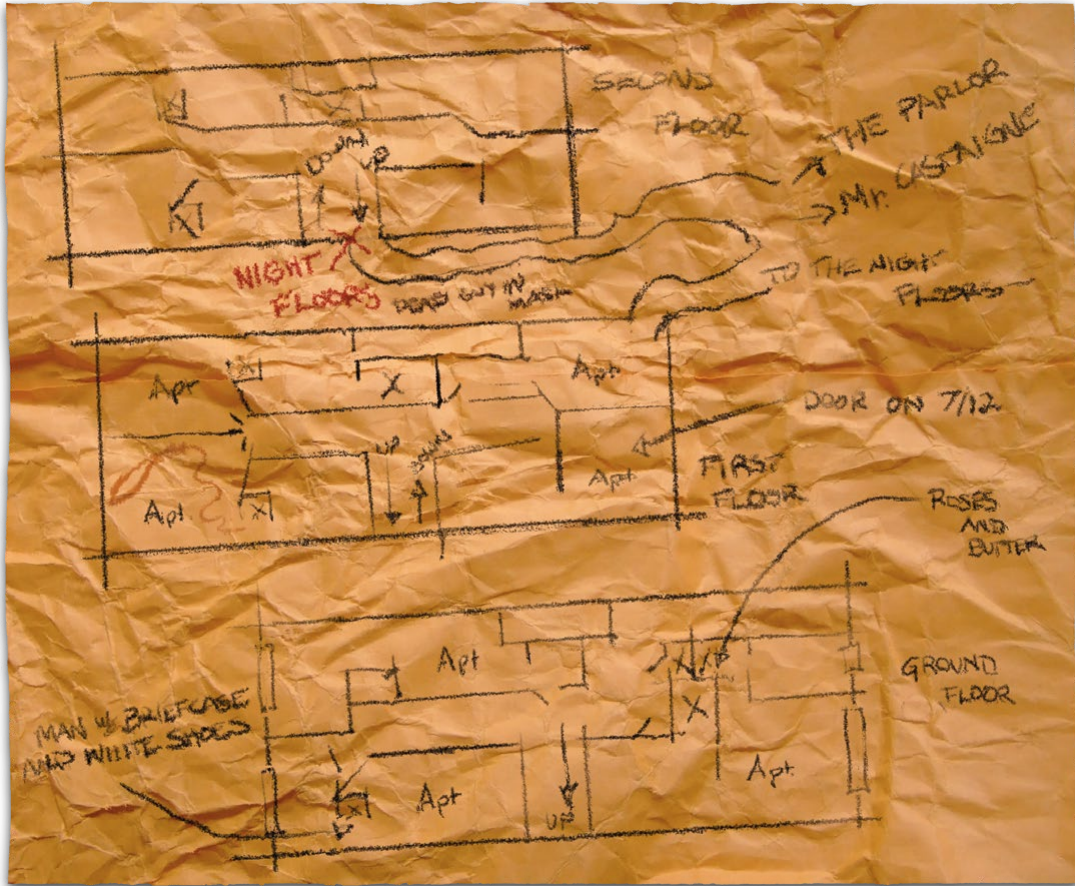 SECOND
FLOOR
THE PARLOR
Mr. CASTAIGNE
DOWN
UP
X
X
NIGHT
FLOORS
DEAD GUY IN
MASK
TO THE NIGHT
FLOORS
Apt
X
X
Apt
DOOR ON 7/12
UP
DOWN
Apt
X
Apt
FIRST
FLOOR
ROSES
AND
BUTTER
Apt
X
X
GROUND
FLOOR
MAN W/ BRIEFCASE
AND WHITE SHOES
X
Apt
UP
Apt